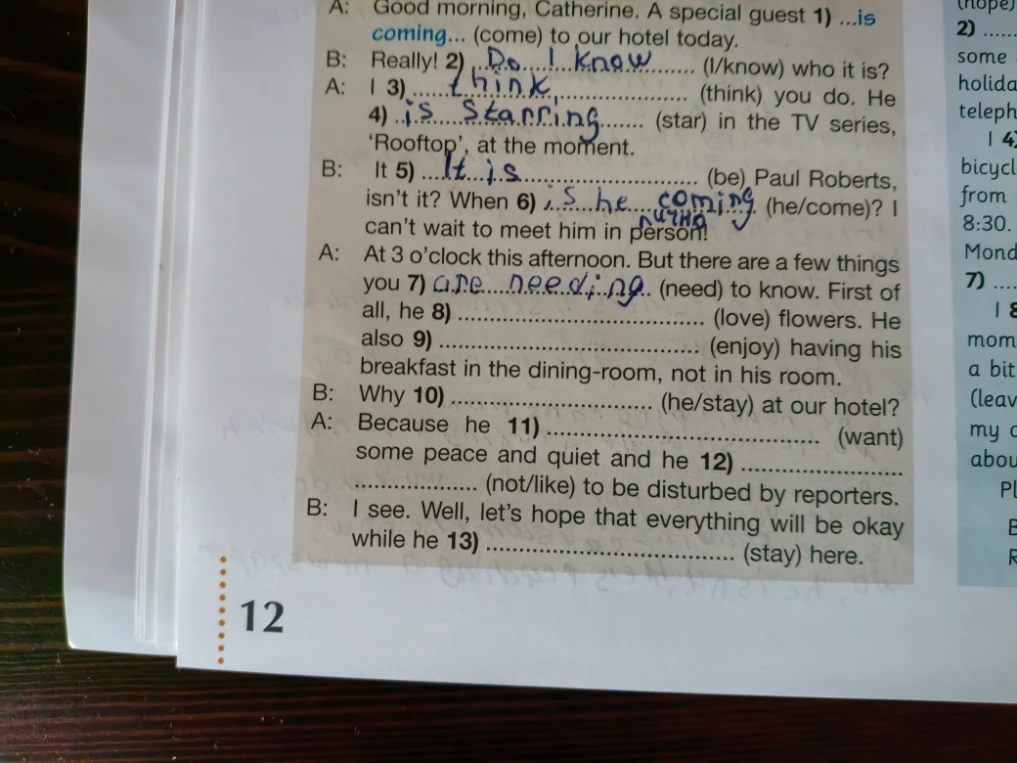 A: Good morning, Catherine. A special guest 1) ...is
coming... (come) to our hotel today.
B: Really! 2) ...Do I know... (I/know) who it is?
A: I 3) ...think... (think) you do. He
4) ...is starring... (star) in the TV series,
'Rooftop', at the moment.
B: It 5) ...It is... (be) Paul Roberts,
isn't it? When 6) is he coming (he/come)? I
лично
can't wait to meet him in person!
A: At 3 o'clock this afternoon. But there are a few things
you 7) are needing (need) to know. First of
all, he 8) ................ (love) flowers. He
also 9) ................ (enjoy) having his
breakfast in the dining-room, not in his room.
B: Why 10) ................ (he/stay) at our hotel?
A: Because he 11) ................ (want)
some peace and quiet and he 12) ................
................ (not/like) to be disturbed by reporters.
B: I see. Well, let's hope that everything will be okay
while he 13) ................ (stay) here.
12
(hope)
2) ......
some
holida
teleph
I 4)
bicycl
from
8:30.
Mond
7) ....
I 8
mom
a bit
(leav
my
abou
Pl